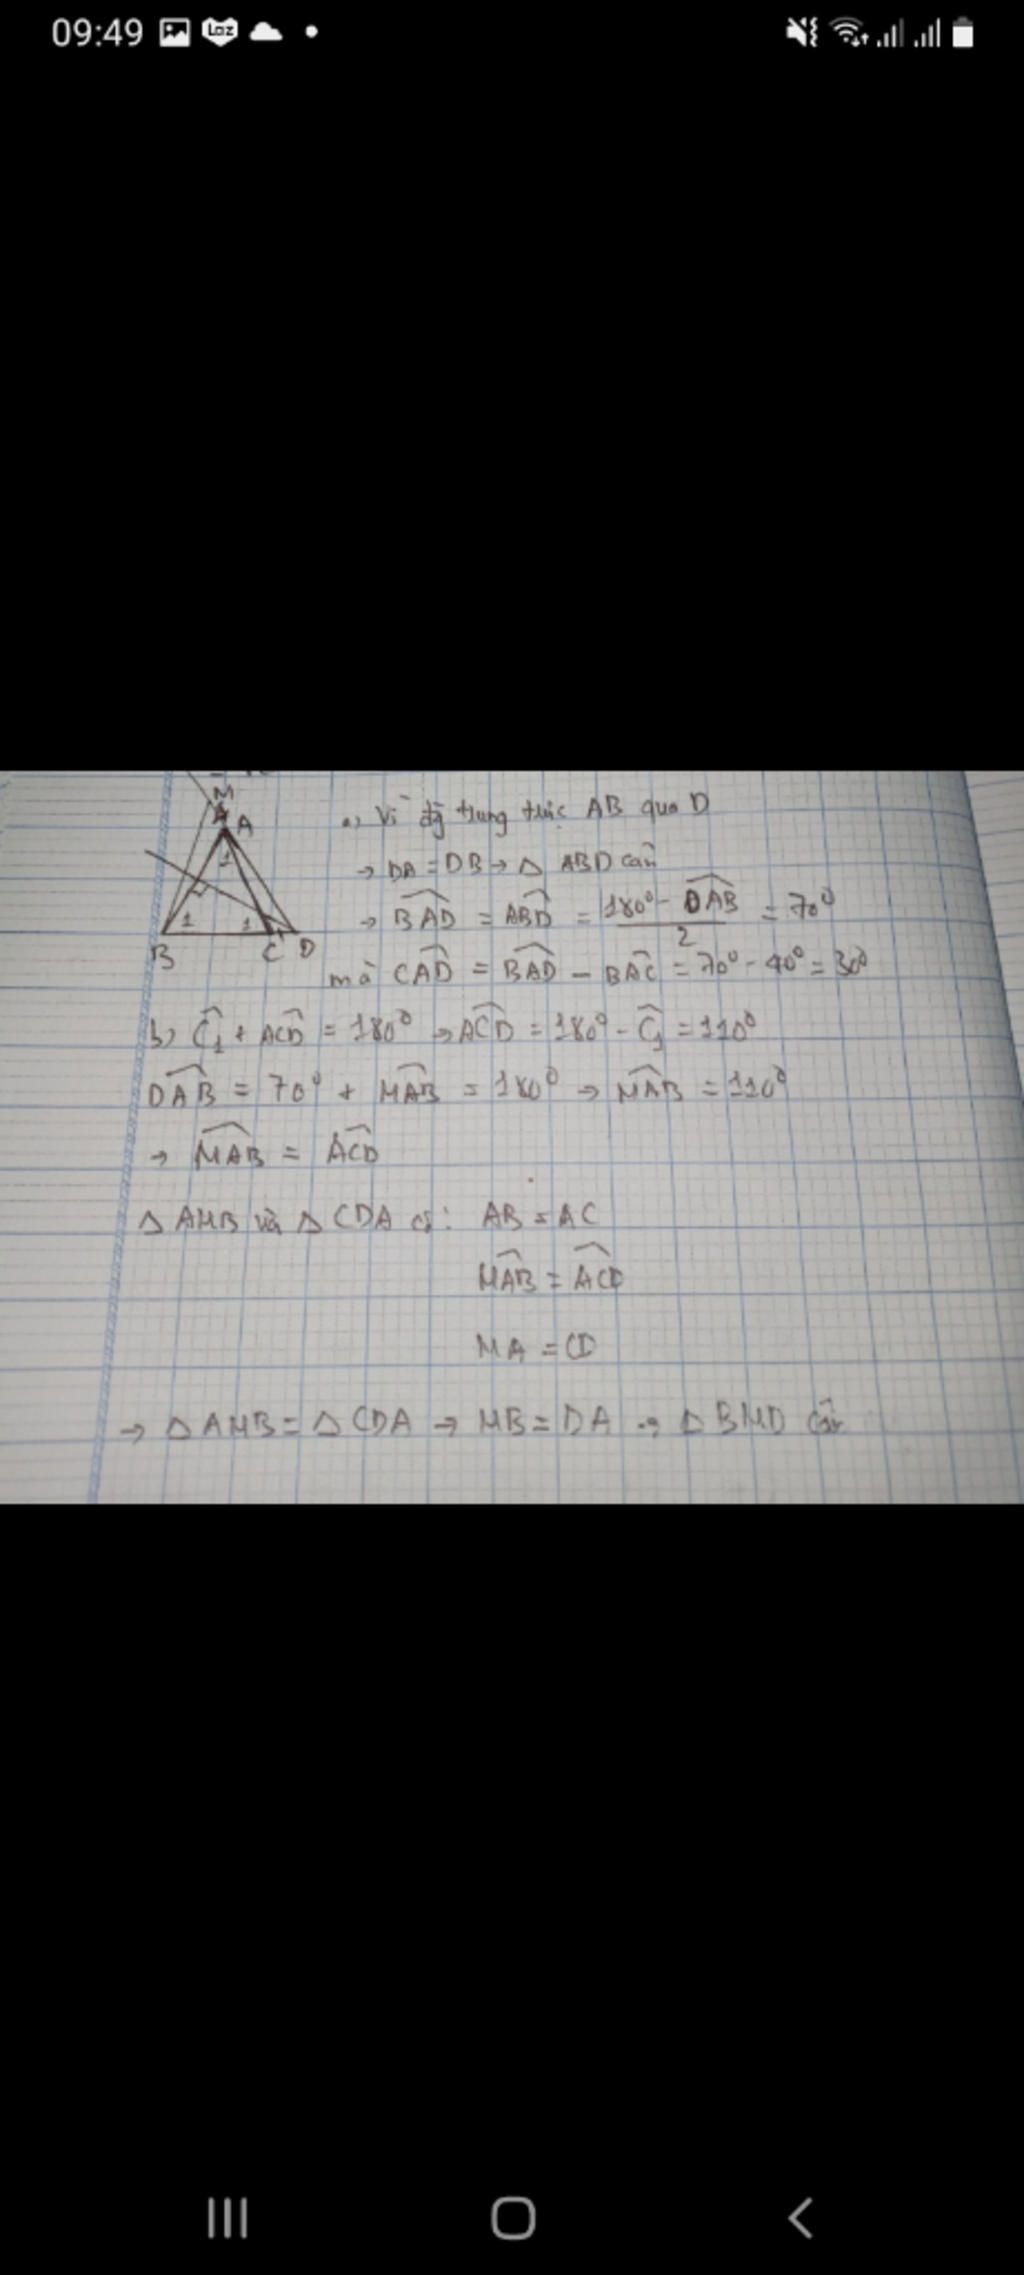 09:49
Laz
M
A
1
1 1
B C D
a) Vì đg trung trực AB qua D
→ DA = DB → △ ABD cân
→ BAD = ABD = 180° - DAB / 2 = 70°
mà CAD = BAD - BAC = 70° - 40° = 30°
b) C₁ + ACD = 180° → ACD = 180° - C₁ = 110°
DAB = 70° + MAB = 180° → MAB = 110°
→ MAB = ACD
△ AMB và △ CDA có: AB = AC
MAB = ACD
MA = CD
→ △ AMB = △ CDA → MB = DA → △ BMD cân